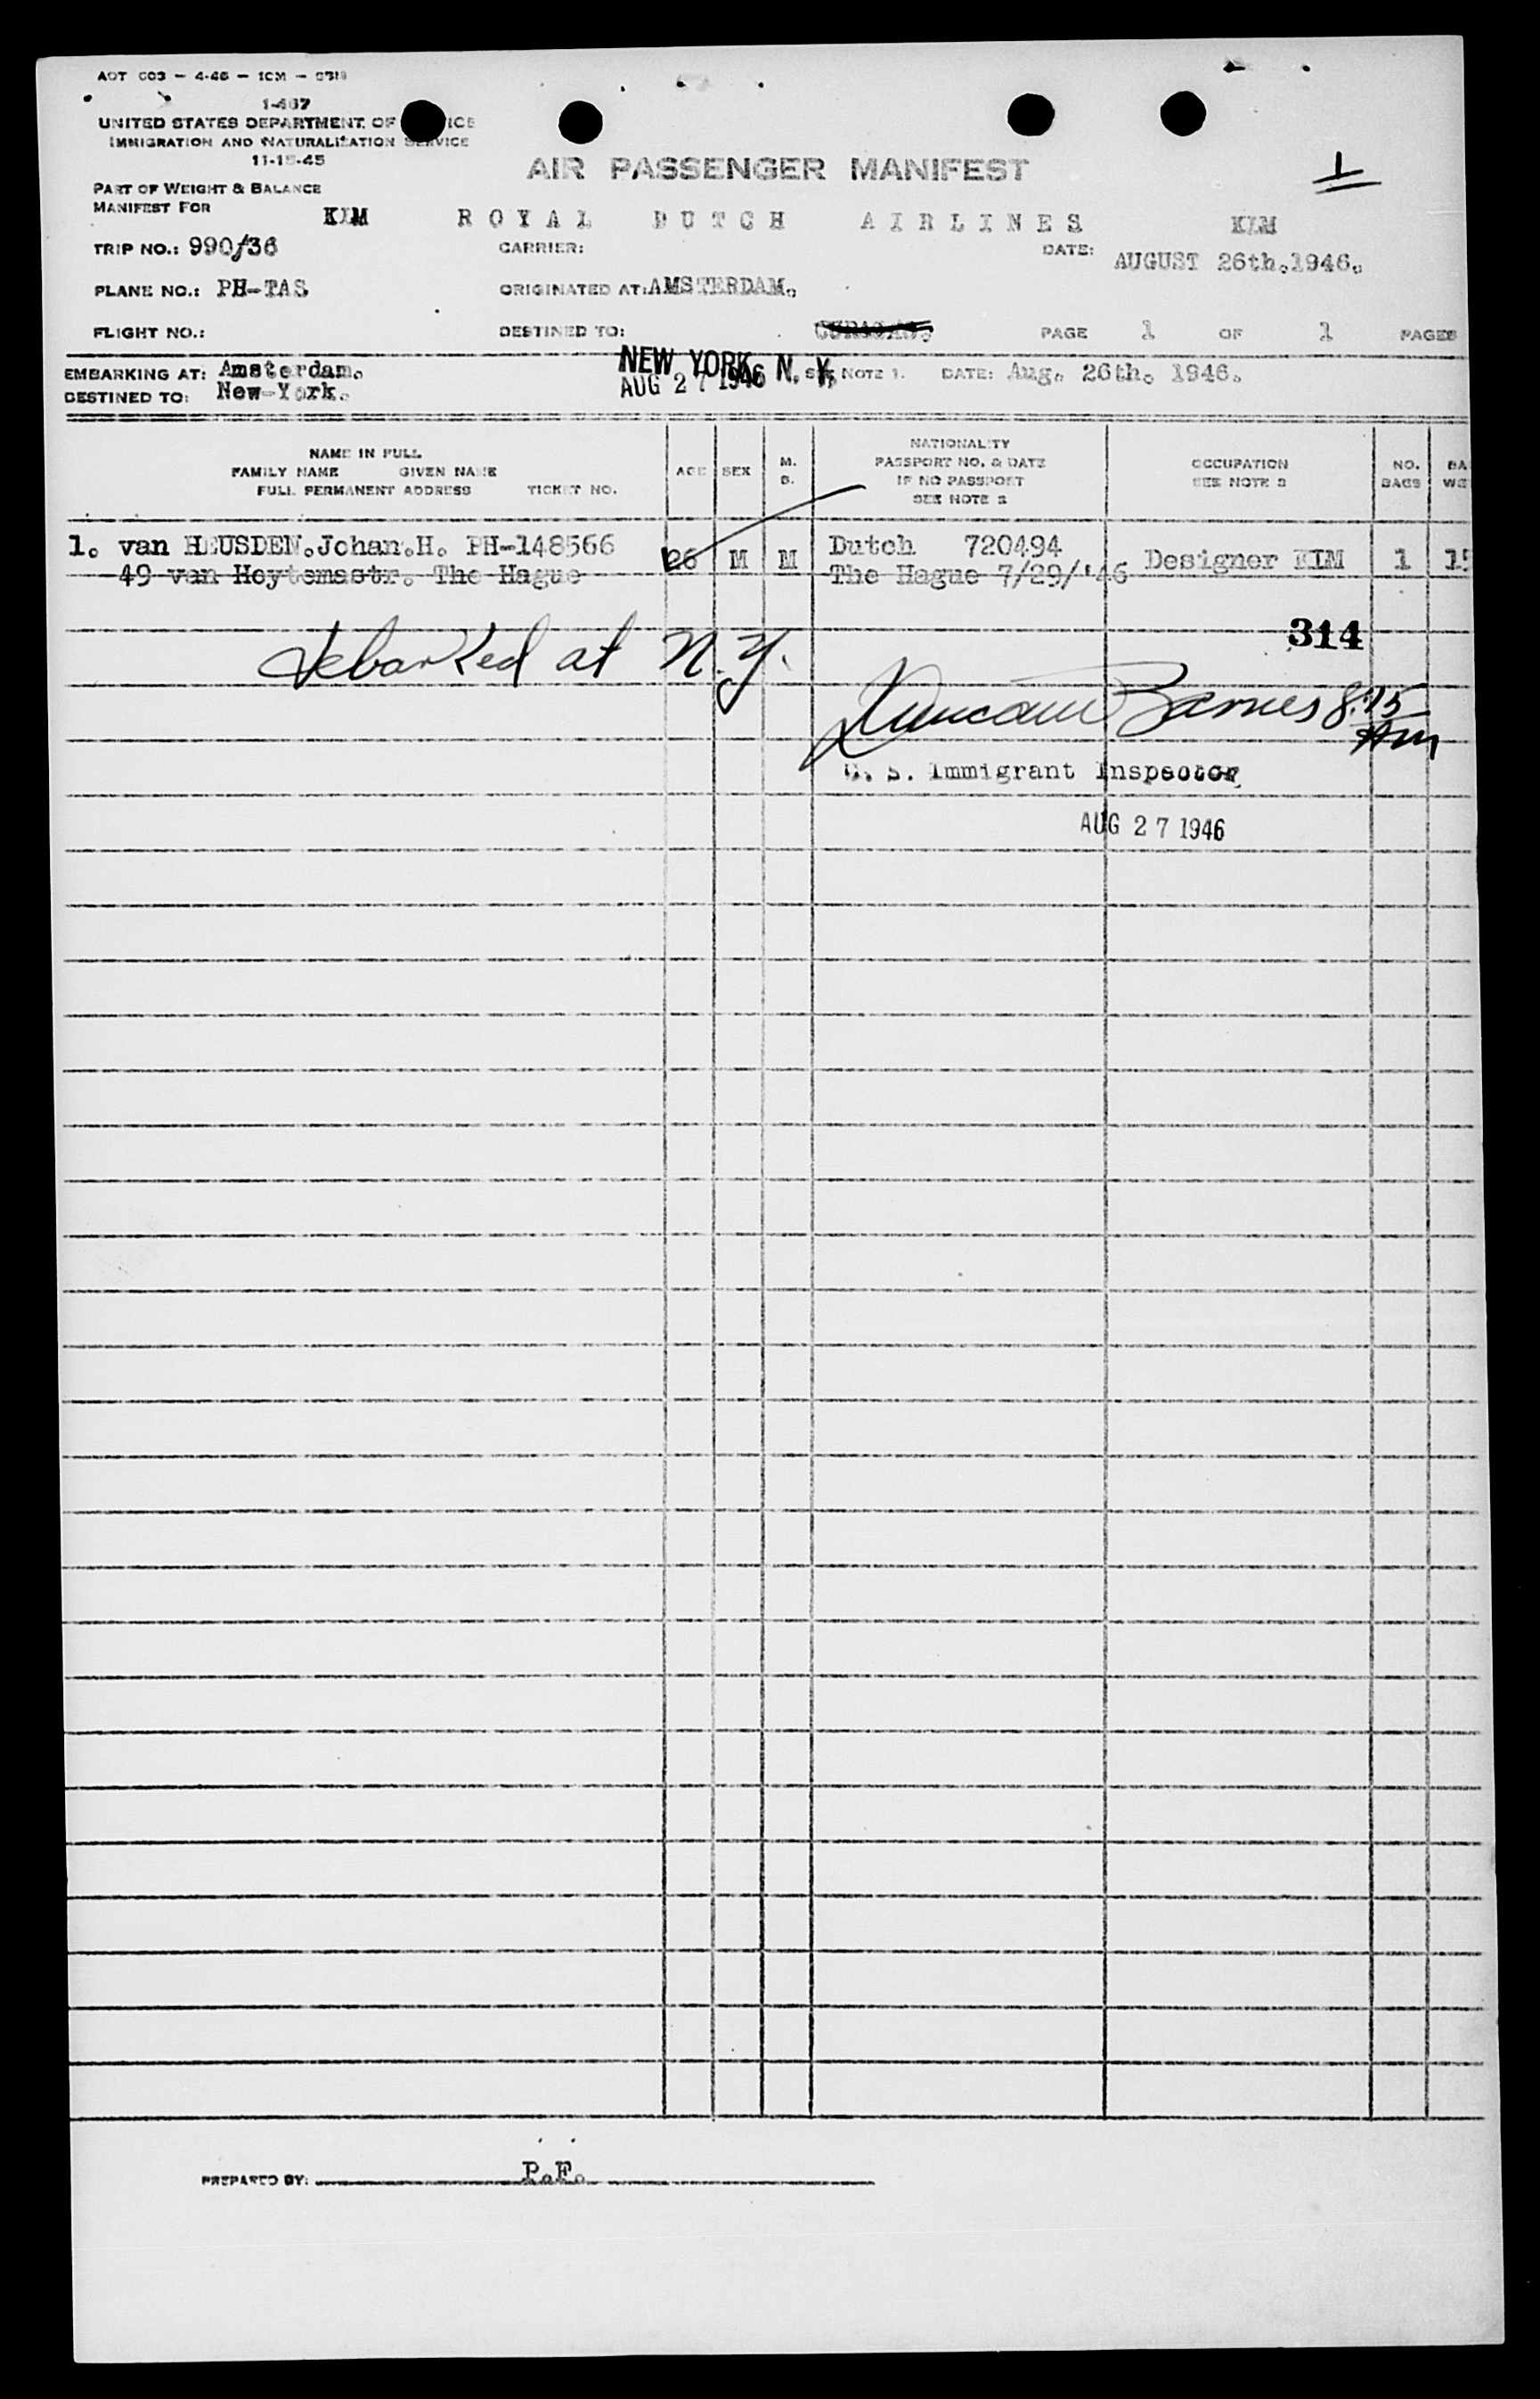 1-467
UNITED STATES DEPARTMENT OF ICE
IMMIGRATION AND NATURALIZATION SERVICE
11-15-45
AIR PASSENGER MANIFEST
1
PART OF WEIGHT & BALANCE
MANIFEST FOR
KLM ROYAL DUTCH AIRLINES KLM
TRIP NO.: 990/36 CARRIER: DATE: AUGUST 26th.1946.
PLANE NO.: PH-TAS ORIGINATED AT: AMSTERDAM.
FLIGHT NO.: DESTINED TO: PAGE 1 OF 1 PAGES
EMBARKING AT: Amsterdam. NEW YORK, N. Y. SEE NOTE 1. DATE: Aug. 26th. 1946.
DESTINED TO: New-York. AUG 27 1946
NAME IN FULL
FAMILY NAME GIVEN NAME
FULL PERMANENT ADDRESS TICKET NO.
AGE SEX M. S.
NATIONALITY
PASSPORT NO. & DATE
IF NO PASSPORT
SEE NOTE 2
OCCUPATION
SEE NOTE 3
NO.
BAGS
BA
WE
1. van HEUSDEN.Johan.H. PH-148566 26 M M Dutch 720494 Designer KLM 1 15
49 van Hoytemastr. The Hague The Hague 7/29/'46
314
debarked at N.Y.
Duncan Barnes 8:15 Am
U. S. Immigrant Inspector
AUG 27 1946
PREPARED BY: P.F.